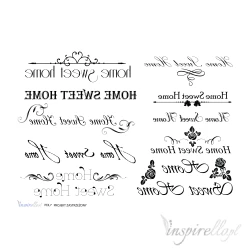 home sweet home
HOME SWEET HOME
Home Sweet Home
Home Sweet Home
Home
Sweet Home
Home Sweet Home
Home Sweet Home
Home Sweet Home
Home
Sweet Home
inspirello.pl